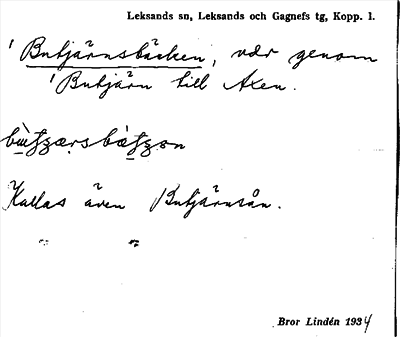 Leksands sn, Leksands och Gagnefs tg, Kopp. l.
Butjärnsbäcken, vdr genom
Butjärn till Axen.
Kallas även Butjärnsån.
Bror Lindén 1934